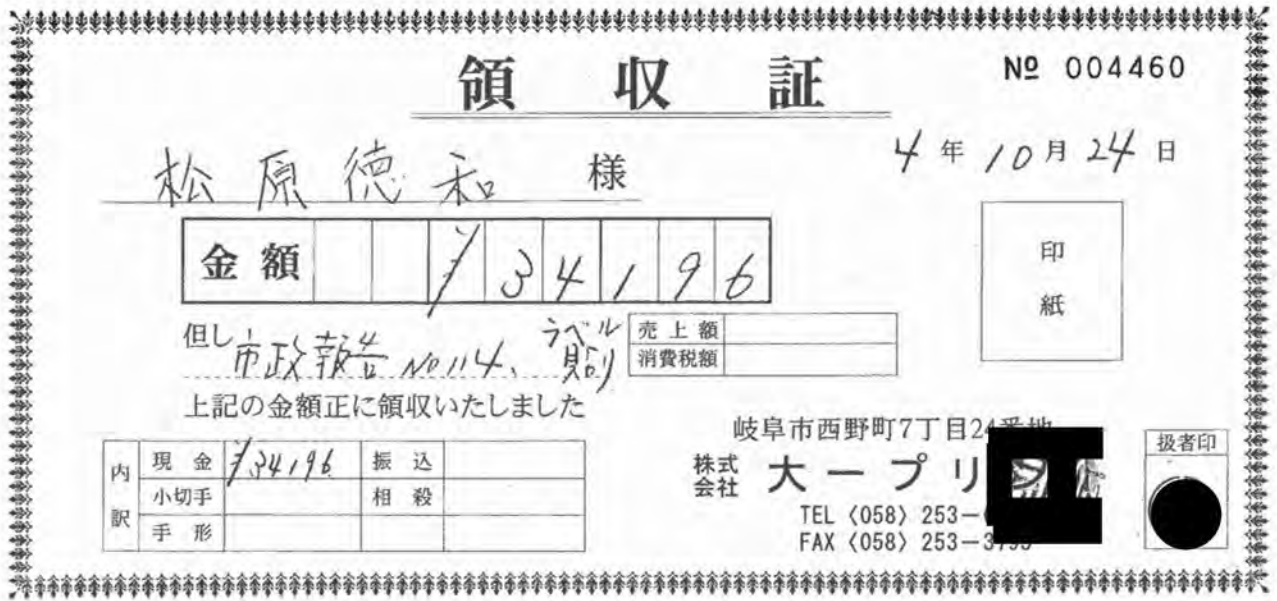 領収証
№ 004460
4年10月24日
松原徳和 様
金額 ¥34196
印紙
但し 市政報告 No114、ラベル貼り
売上額
消費税額
上記の金額正に領収いたしました
内訳
現金 ¥34196 振込
小切手 相殺
手形
岐阜市西野町7丁目24番地
株式会社 大一プリ
TEL〈058〉253―
FAX〈058〉253―3795
扱者印